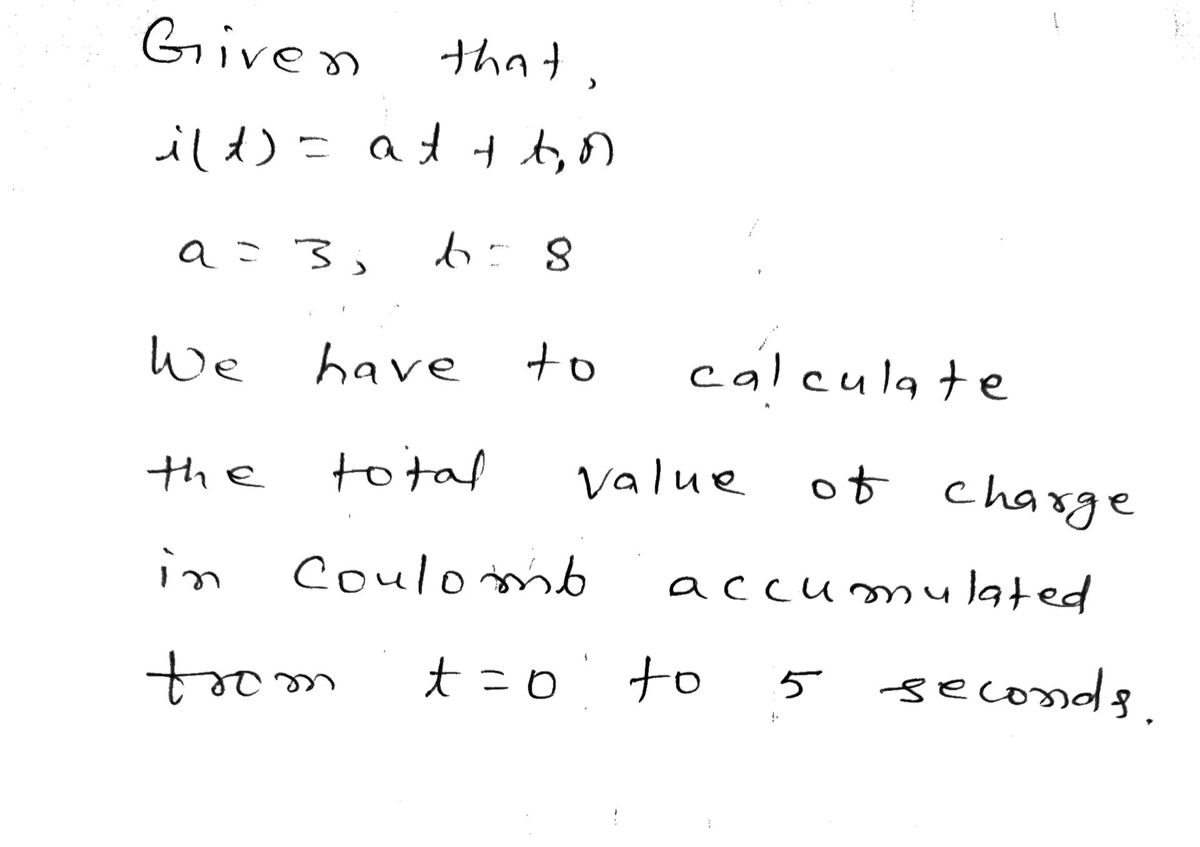 Given that,
i(t) = at + b,
a = 3, b = 8
We have to calculate
the total value of charge
in Coulomb accumulated
from t = 0 to 5 seconds.